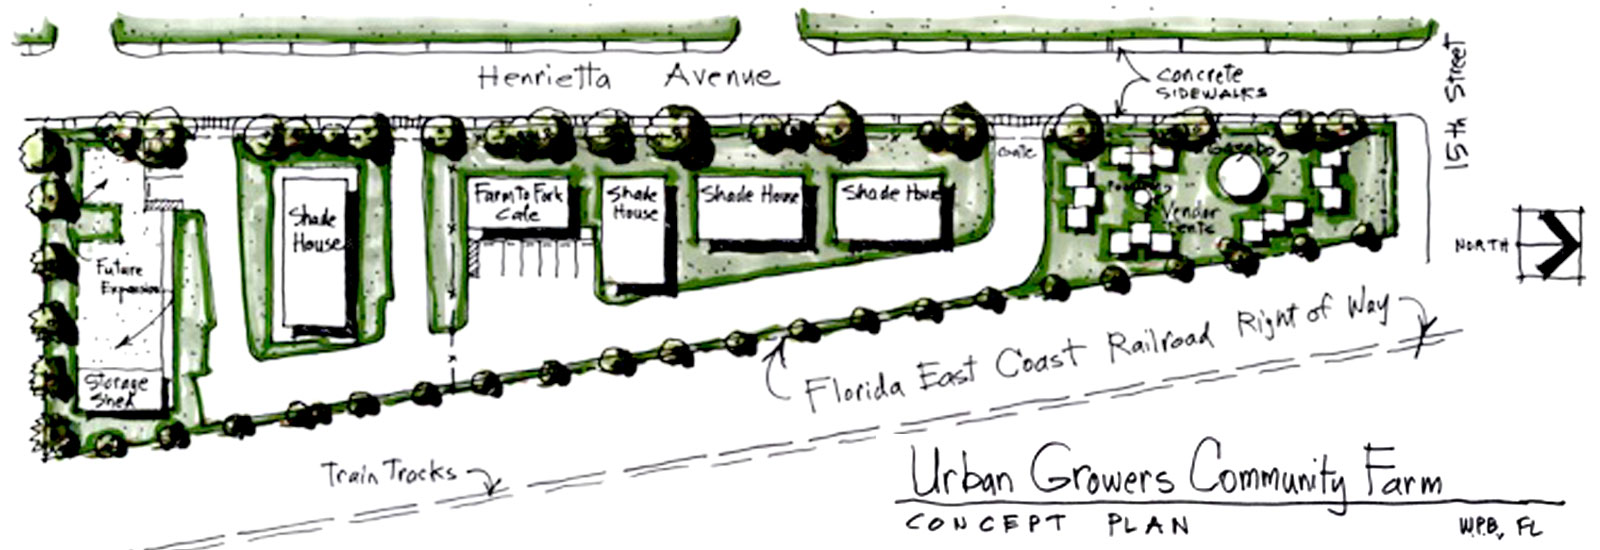 Henrietta Avenue
Concrete
SIDEWALKS
15th Street
Gate
Gazebo
Shade
House
Farm To Fork
Cafe
Shade
House
Shade House
Shade House
Vendor
Tents
NORTH
Future
Expansion
Storage
Shed
Florida East Coast Railroad Right of Way
Train Tracks
Urban Growers Community Farm
CONCEPT PLAN
W.P.B, FL